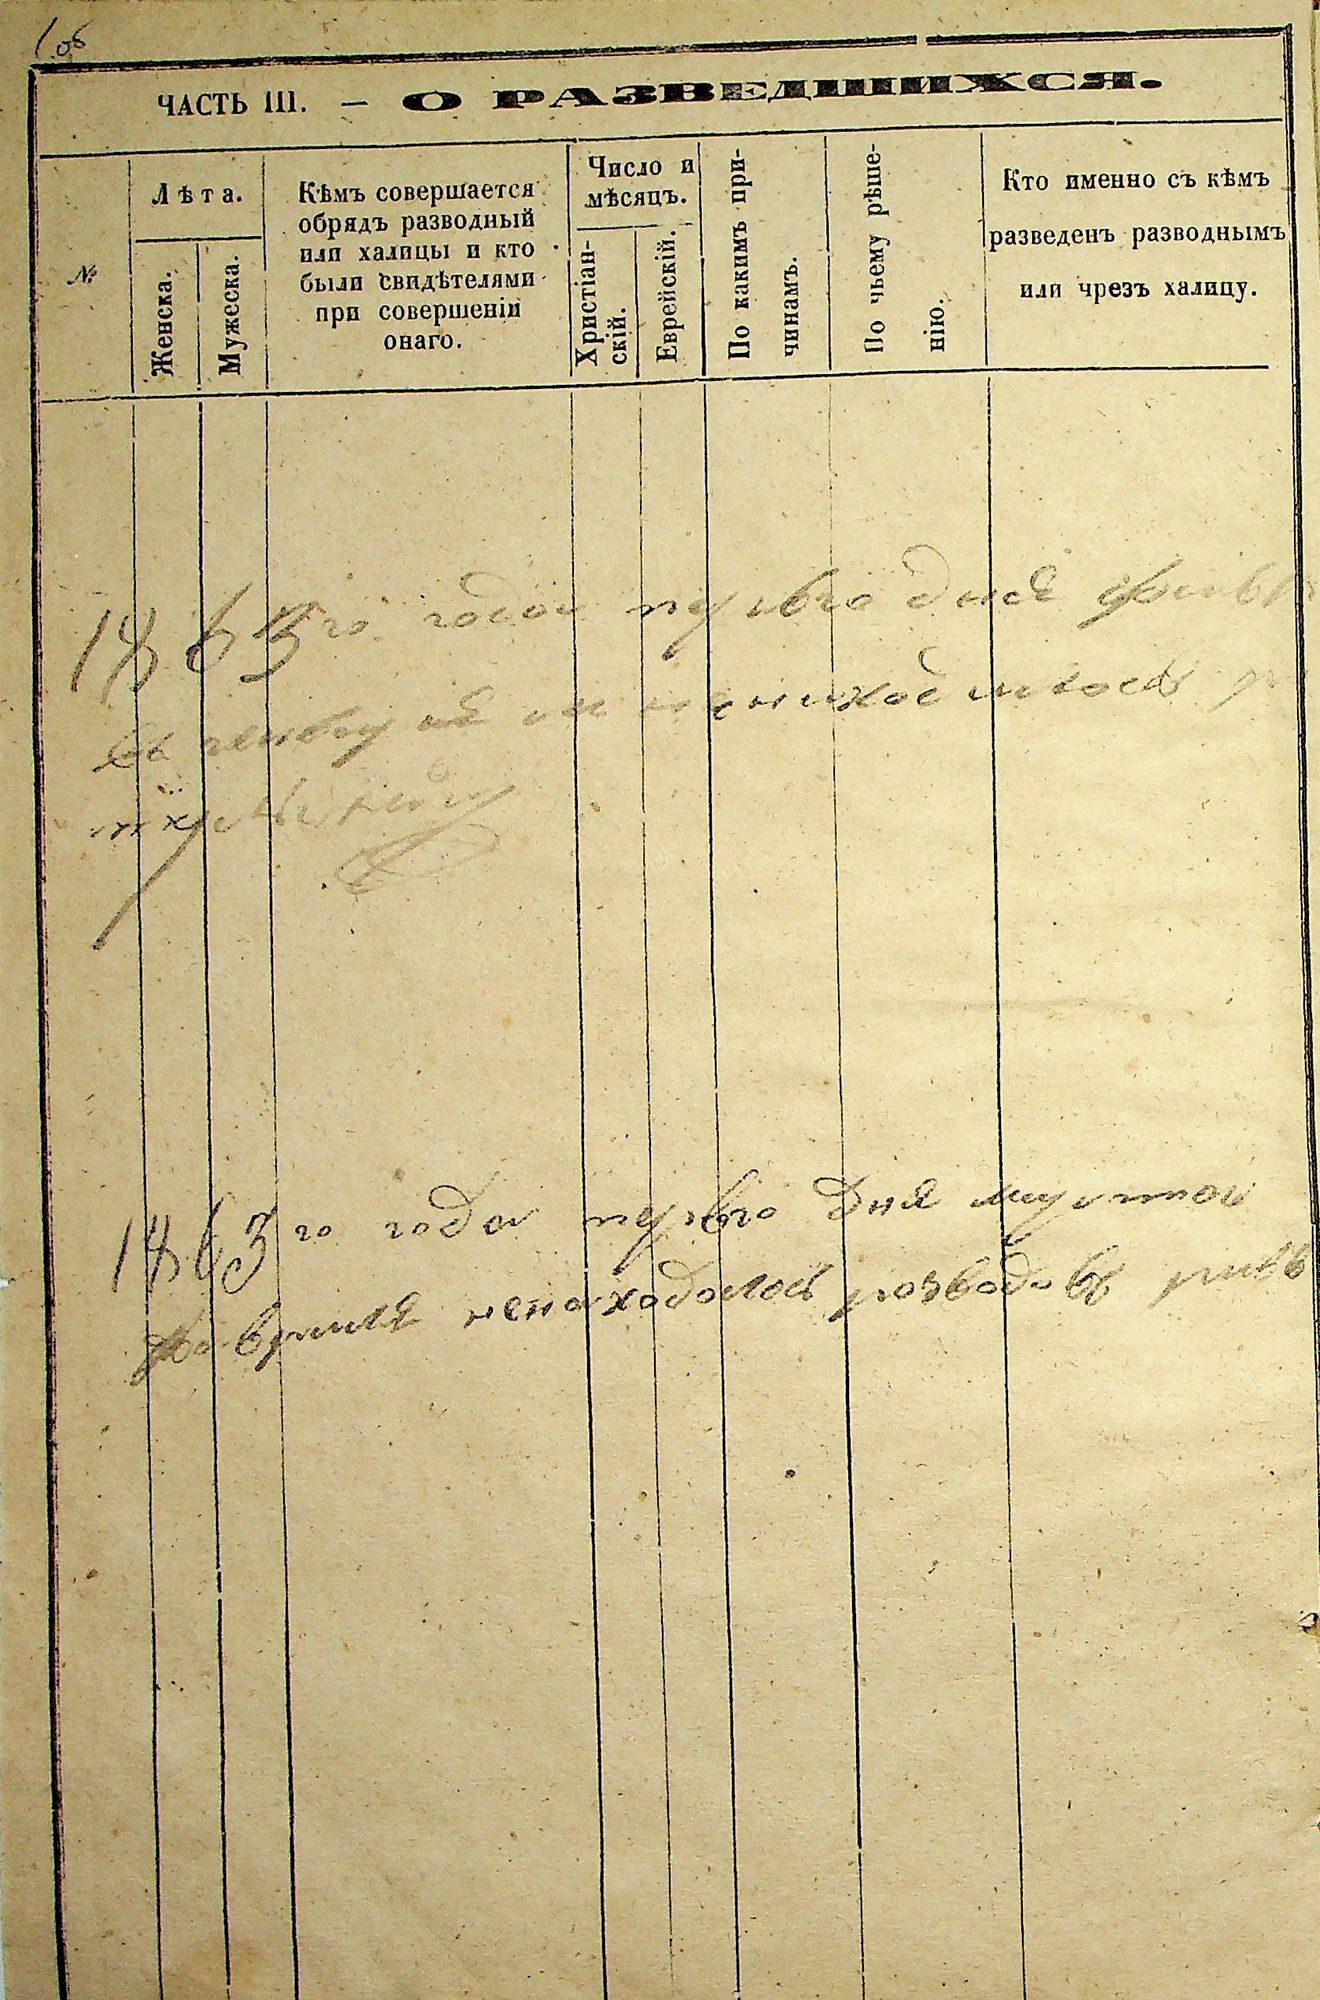 1 об
ЧАСТЬ III. — О РАЗВЕДШИХСЯ.
№
Лѣта.
Женска.
Мужеска.
Кѣмъ совершается
обрядъ разводный
или халицы и кто
были свидѣтелями
при совершеніи
онаго.
Число и
мѣсяцъ.
Христіан-
скій.
Еврейскій.
По какимъ при-
чинамъ.
По чьему рѣше-
нію.
Кто именно съ кѣмъ
разведенъ разводнымъ
или чрезъ халицу.
1863го года первго дня
1863го года первго дня марта
время ненаходолось розводовъ